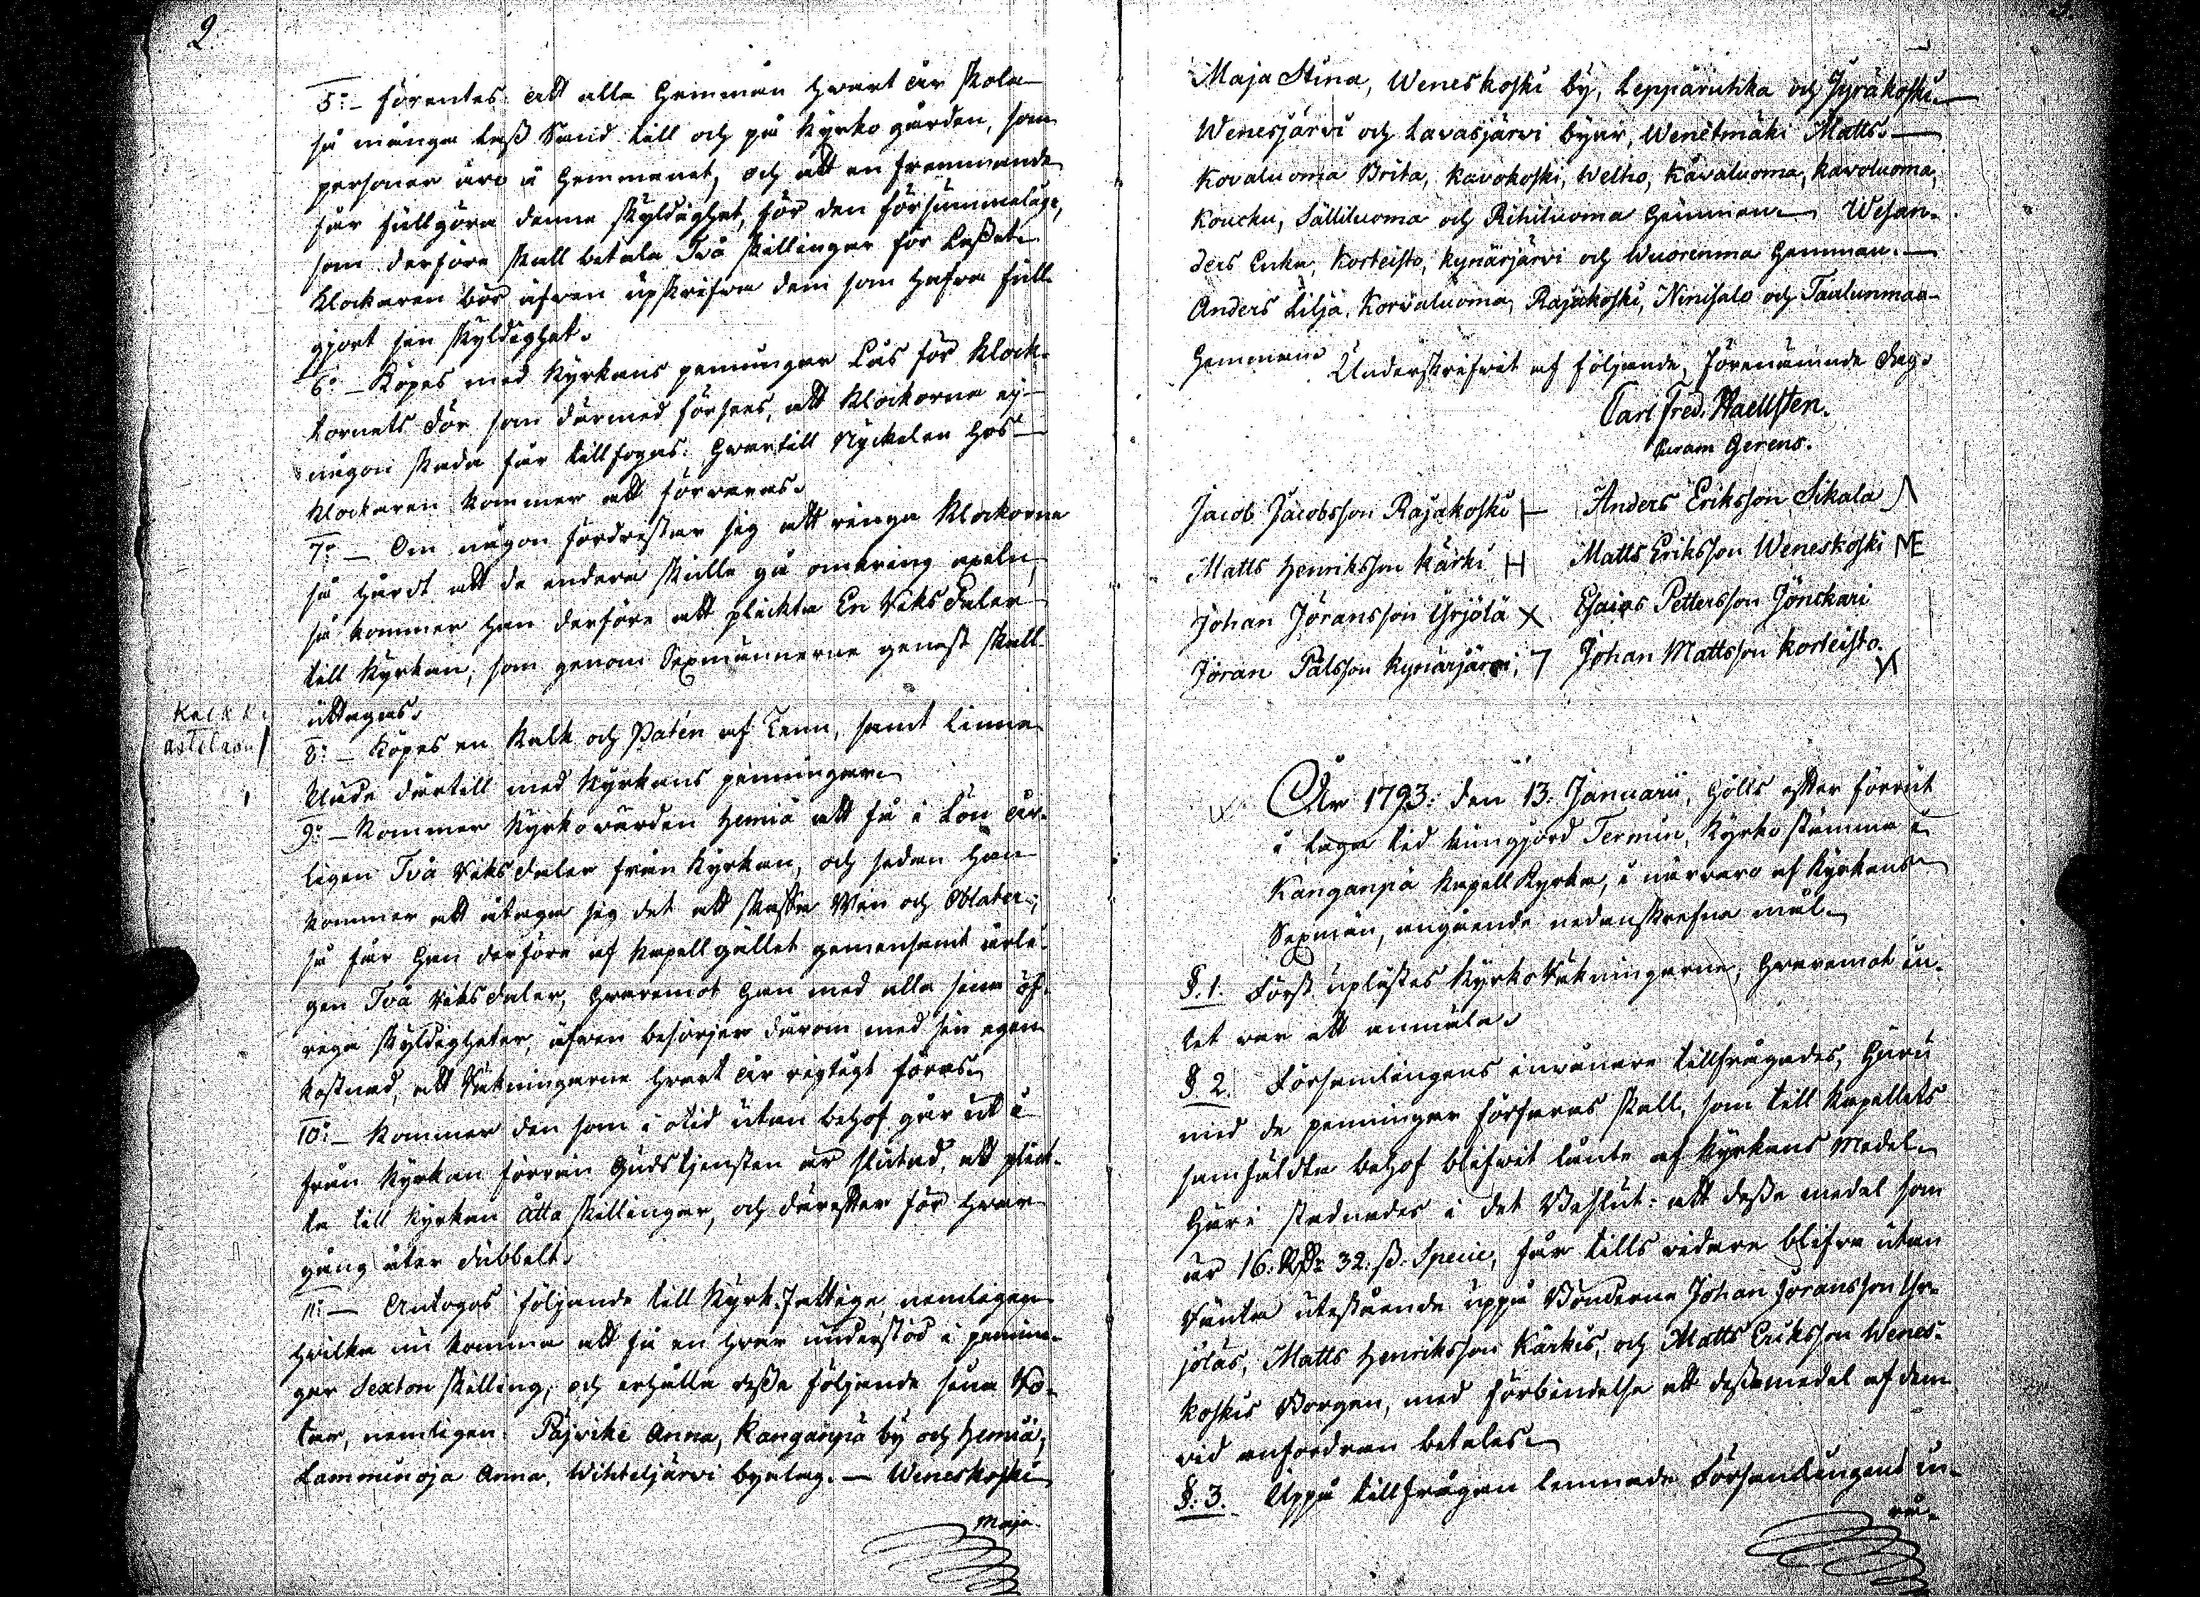 2.
5:o – förentes att alla Hemman hwart år skola
så många lass Sand till och på Kyrkogården, som
personer äro å Hemmanet, och att en främmande
får fullgöra denna skyldighet, för den försummelige,
som derföre skall betala Två skillingar för Lasset.
Klockaren bör äfven upskrifva dem som hafva full-
gjort sin skyldighet.
6:o – Köpes med Kyrkans penningar Lås för Klock-
tornets dör som därmed förses, att Klockorna ej
någon skada får tillfogas: Hwartill Nyckelen hos
Klockaren kommer att förvaras.
7:o – Om någon fördristar sig att ringa Klockorna
så hårdt att de endera skulle gå omkring axeln,
så kommer han derföre att plickta En Riksdaler
till Kyrkan, som genom Sexmännerne genast skall
uttagas.
Kalkki
astelasu
8:o – Köpes en Kalk och Patén af Tenn, samt Linne
Kläde dertill med Kyrkans penningar.
9:o – Kommer Kyrkovärden Hemiä att få i Lön år-
ligen Två Riksdaler från Kyrkan, och sedan han
kommer att åtaga sig det att skaffa Win och Oblater;
så får han derföre af Kapellgället gemensamt årli-
gen Två Riksdaler, hwaremot han med alla sina öf-
riga skyldigheter, äfven besörjer därom med sin egen
kostnad, att Räkningarne hwart år rigtigt föras.
10:o – Kommer den som i otid utan behof går ut i
från Kyrkan förrän Gudstjensten är slutad, att plick-
ta till Kyrkan åtta skillingar, och därefter för hwar
gång åter dubbelt.
11:o – Antogos följande till Kyrk-fattige, nemligen
hvilka nu komma att få en hwar understöd i pennin-
gar Sexton skilling, och erhålla desse följande sina Ro-
tar, nemligen: Pajvike Anna, Kanganpä by och Hemiä;
Lamminoja Anna, Wihteljärvi byalag. – Weneskoski
Maja
Maja Stina, Weneskoski by, Leppäruhka och Jyräkoski.
Wenesjärvi och Lavasjärvi byar, Wenetmäki Matts.
Kovaluoma Brita, Kavokoski, Welho, Kåvaluoma, Karoluoma,
Kouchu, Sälliluoma och Rihiluoma Hemman. Wesan-
ders Enka, Korteisto, Kynäsjärvi och Wuorenma Hemman.
Anders Lilja, Korvaluoma, Rajakoski, Ninisalo och Taulunmaa
Hemman.
Underskrifvit af följande, förenämnde dag.
Carl Fred. Haellsten.
Curam Gerens.
Jacob Jacobsson Rajakoski Anders Eriksson Sikala
Matts Henriksson Kärki H Matts Eriksson Weneskoski ME
Johan Jöransson Yrjölä X Esaias Pettersson Jönckari
Jöran Pålsson Kynäsjärvi, Johan Mattsson Korteisto.
År 1793: den 13. Januarii, hölts efter förrut
i laga tid kungjord Termin, Kyrkostämma i
Kanganpä Kapell Kyrka, i närvaro af Kyrkans
Sexmän, angående nedanskrefna mål.
§. 1. Först uplästes Kyrko Räkningarne, hvaremot in-
tet var att anmäla.
§ 2. Församlingens invånare tillfrågades, huru
med de penningar förfaras skall, som till Kapellets
samfäldta behof blifvit lånte af Kyrkans Medel.
Häri stadnades i det Beslut: att desse medel som
är 16. Rdr 32. ß. Specie, får tills vidare blifva utan
Ränta utestående uppå Bönderne Johan Jöransson Yr-
jöläs, Matts Henriksson Kärkis, och Matts Eriksson Wenes-
koskis Borgen, med förbindelse att desse medel af dem
vid anfordran betalas.
§. 3. Uppå tillfrågan lemnade Församlingens in-
vå-